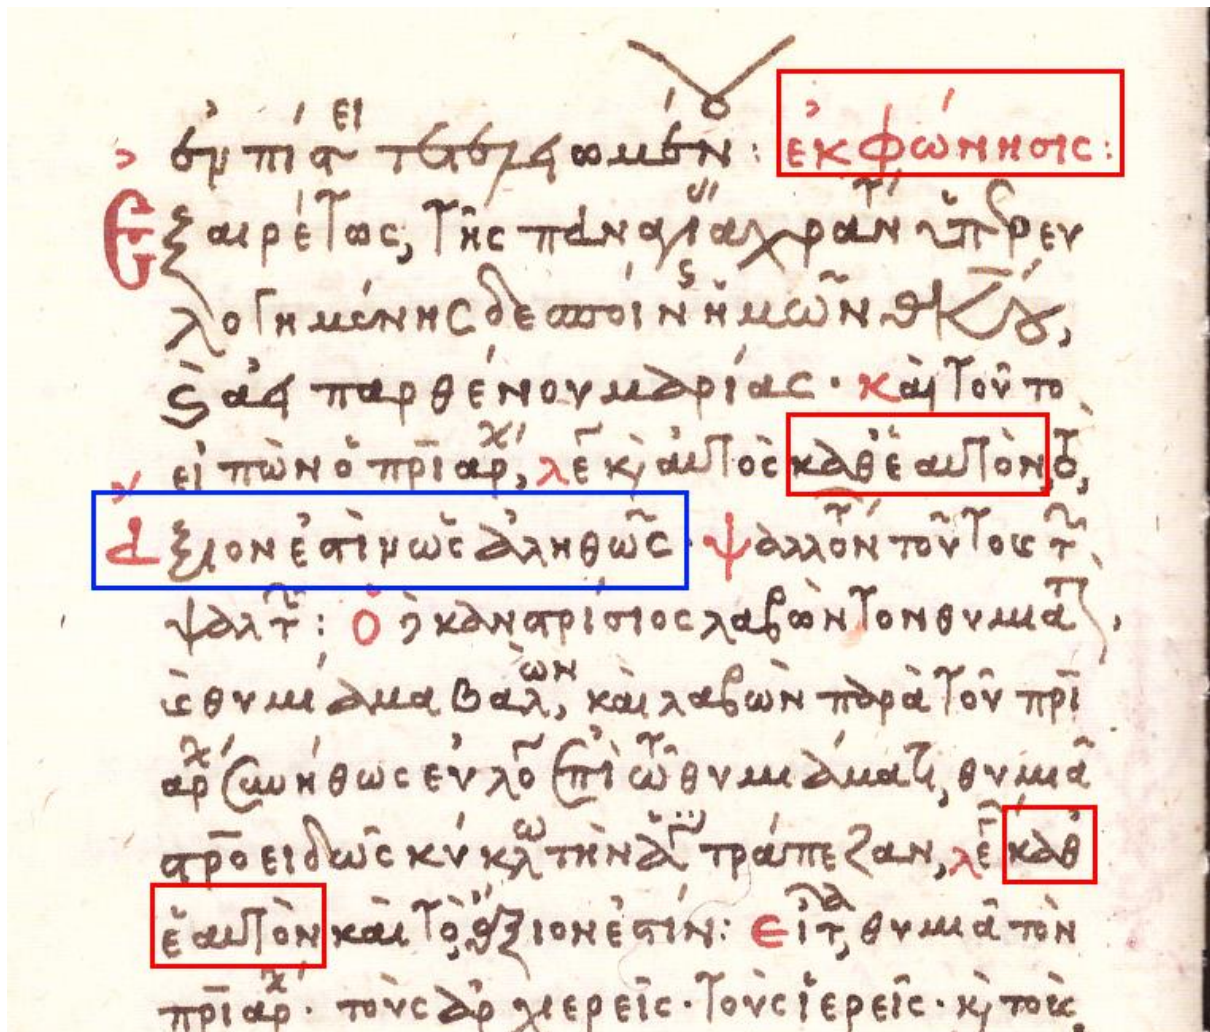 ἐκφώνησις:
Ἐξαιρέτως, τῆς παναγίας ἀχράν ὑπερευ
λογημένης δεσποίνης ἡμῶν θκου,
καὶ ἀει παρθένου μαρίας · καὶ τοῦτο
εἰπὼν ὁ πρι αρχ, λε κ αὐτὸς καθ' ἑαυτὸν, τὸ,
ἄξιον ἐστὶν ὡς ἀληθῶς · ψαλλόντων τοῦτο εἰς τ
ψαλτ: Ὁ κανστρίσιος λαβὼν τὸν θυμιατ,
κ θυμίαμα βαλων, καὶ λαβὼν παρὰ τοῦ πρι
αρχ συνήθως εὐλο ἐπὶ τῶ θυμιάματι, θυμιᾶ
προειδῶς κύκλω τὴν ἁγ τράπεζαν, λε καθ
ἑαυτὸν καὶ τὸ ἄξιον ἐστίν: εἶτα, θυμιᾶ τὸν
πρι αρχ · τοὺς ἀρχιερεῖς · τοὺς ἱερεῖς · κ τοὺς